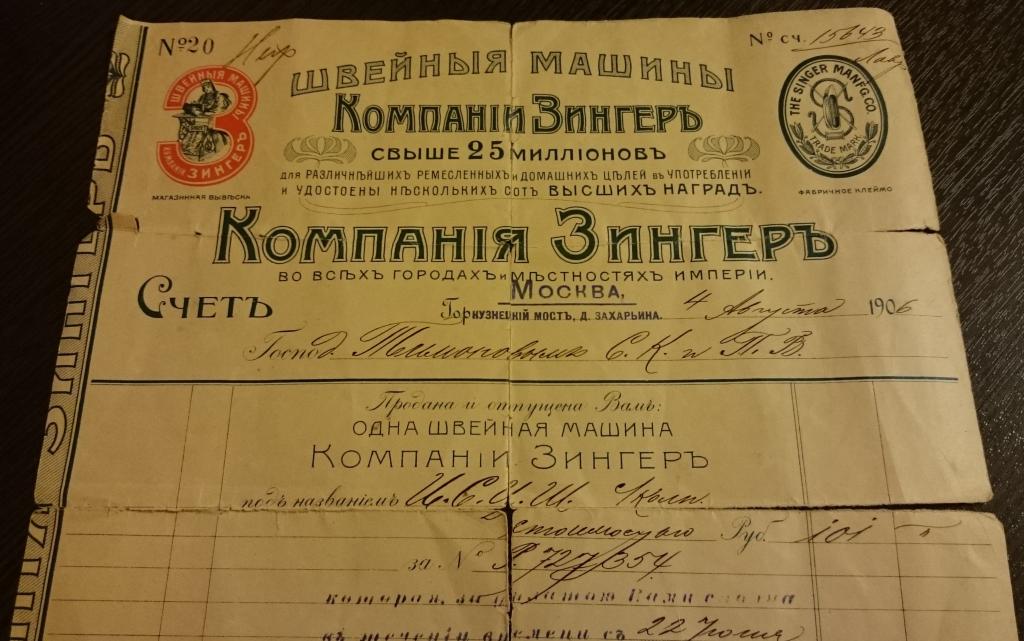 №20
№ сч. 15643
ШВЕЙНЫЯ МАШИНЫ
КОМПАНІИ ЗИНГЕРЪ
THE SINGER MANFG CO.
TRADE MARK
ШВЕЙНЫЯ МАШИНЫ
КОМПАНІИ ЗИНГЕРЪ
СВЫШЕ 25 МИЛЛІОНОВЪ
ДЛЯ РАЗЛИЧНѢЙШИХЪ РЕМЕСЛЕННЫХЪ И ДОМАШНИХЪ ЦѢЛЕЙ ВЪ УПОТРЕБЛЕНІИ
И УДОСТОЕНЫ НѢСКОЛЬКИХЪ СОТЪ ВЫСШИХЪ НАГРАДЪ.
МАГАЗИННАЯ ВЫВѢСКА
ФАБРИЧНОЕ КЛЕЙМО
КОМПАНІЯ ЗИНГЕРЪ
ВО ВСѢХЪ ГОРОДАХЪ И МѢСТНОСТЯХЪ ИМПЕРІИ.
МОСКВА,
СЧЕТЪ
КУЗНЕЦКІЙ МОСТЪ, Д. ЗАХАРЬИНА. 4 Августа 1906
Господ С. К. и П. В.
Продана и отпущена Вамъ:
ОДНА ШВЕЙНАЯ МАШИНА
КОМПАНІИ ЗИНГЕРЪ
подъ названіемъ
стоимостью Руб. 101
за № P.727/354
которая, за уплатою Вами сполна
въ теченіи времени съ 22